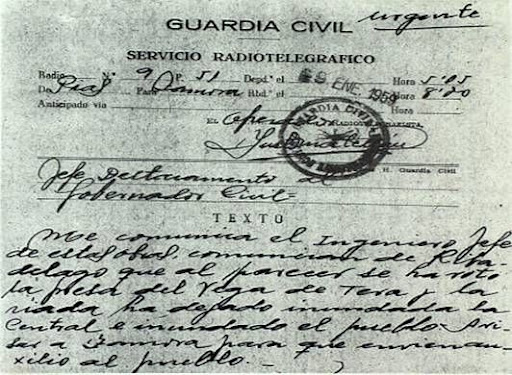 urgente
GUARDIA CIVIL
SERVICIO RADIOTELEGRAFICO
Radio N.º 9 P. 51 Depd.º el 9 ENE. 1959 Hora 5'05
De Para Zamora Rbd.º el Hora 8'20
Anticipado vía Hora
EL RADIOTELEGRAFISTA,
GUARDIA CIVIL
Jefe Destacamento al
Gobernador Civil-
TEXTO
Me comunica el Ingeniero Jefe
de estas obras, comunican de Riba
delago que al parecer se ha roto
la presa del Vega de Tera y la
riada ha dejado inundada la
Central e inundado el pueblo- Avi-
sar a Zamora para que envien au-
xilio al pueblo.-